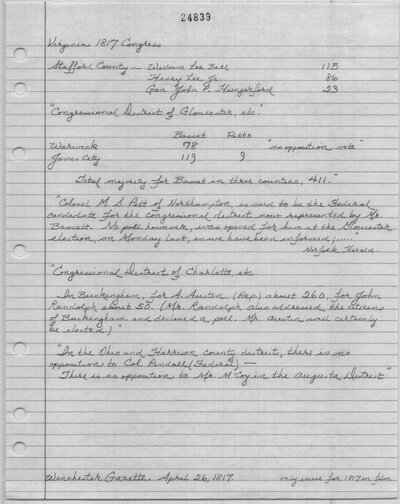 24839
Virginia 1817 Congress
Stafford County — William Lee Ball 115
Henry Lee Jr. 86
Gen John P. Hungerford 23
"Congressional District of Gloucester, etc."
Basset Pitts
Warwick 78 "no opposition vote"
James City 119 9
Total majority for Basset in three counties, 411."
"Colonel M. S. Pitt of Northampton, is said to be the Federal
candidate for the Congressional district now represented by Mr.
Bassett. No poll however, was opened for him at the Gloucester
election, on Monday last, as we have been informed;...."
Norfolk Herald.
"Congressional District of Charlotte, etc.
In Buckingham, for A. Austin, (Rep.) about 260, for John
Randolph about 50. (Mr. Randolph also addressed the citizens
of Buckingham and declined a poll. Mr. Austin will certainly
be elected.)"
"In the Ohio and Harrison county district, there is no
opposition to Col. Pindall (Federal) —
"There is no opposition to Mr. M'Coy in the Augusta District"
Winchester Gazette. April 26, 1817. only issue for 1817 on film